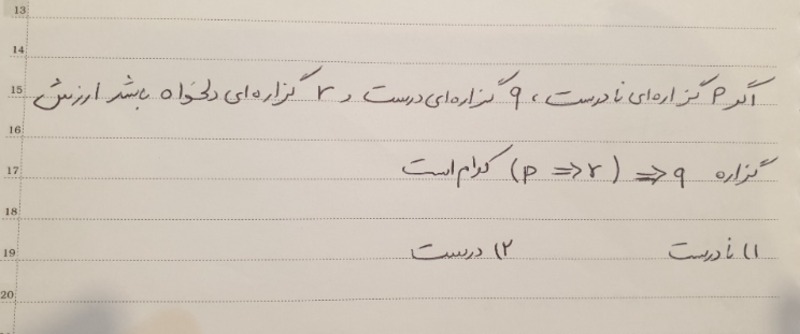 13
14
15
اگر p گزاره‌ای نادرست ، q گزاره‌ای درست و r گزاره‌ای دلخواه باشد ارزش
16
17
گزاره (p => r) => q کدام است
18
19
۱) نادرست ۲) درست
20